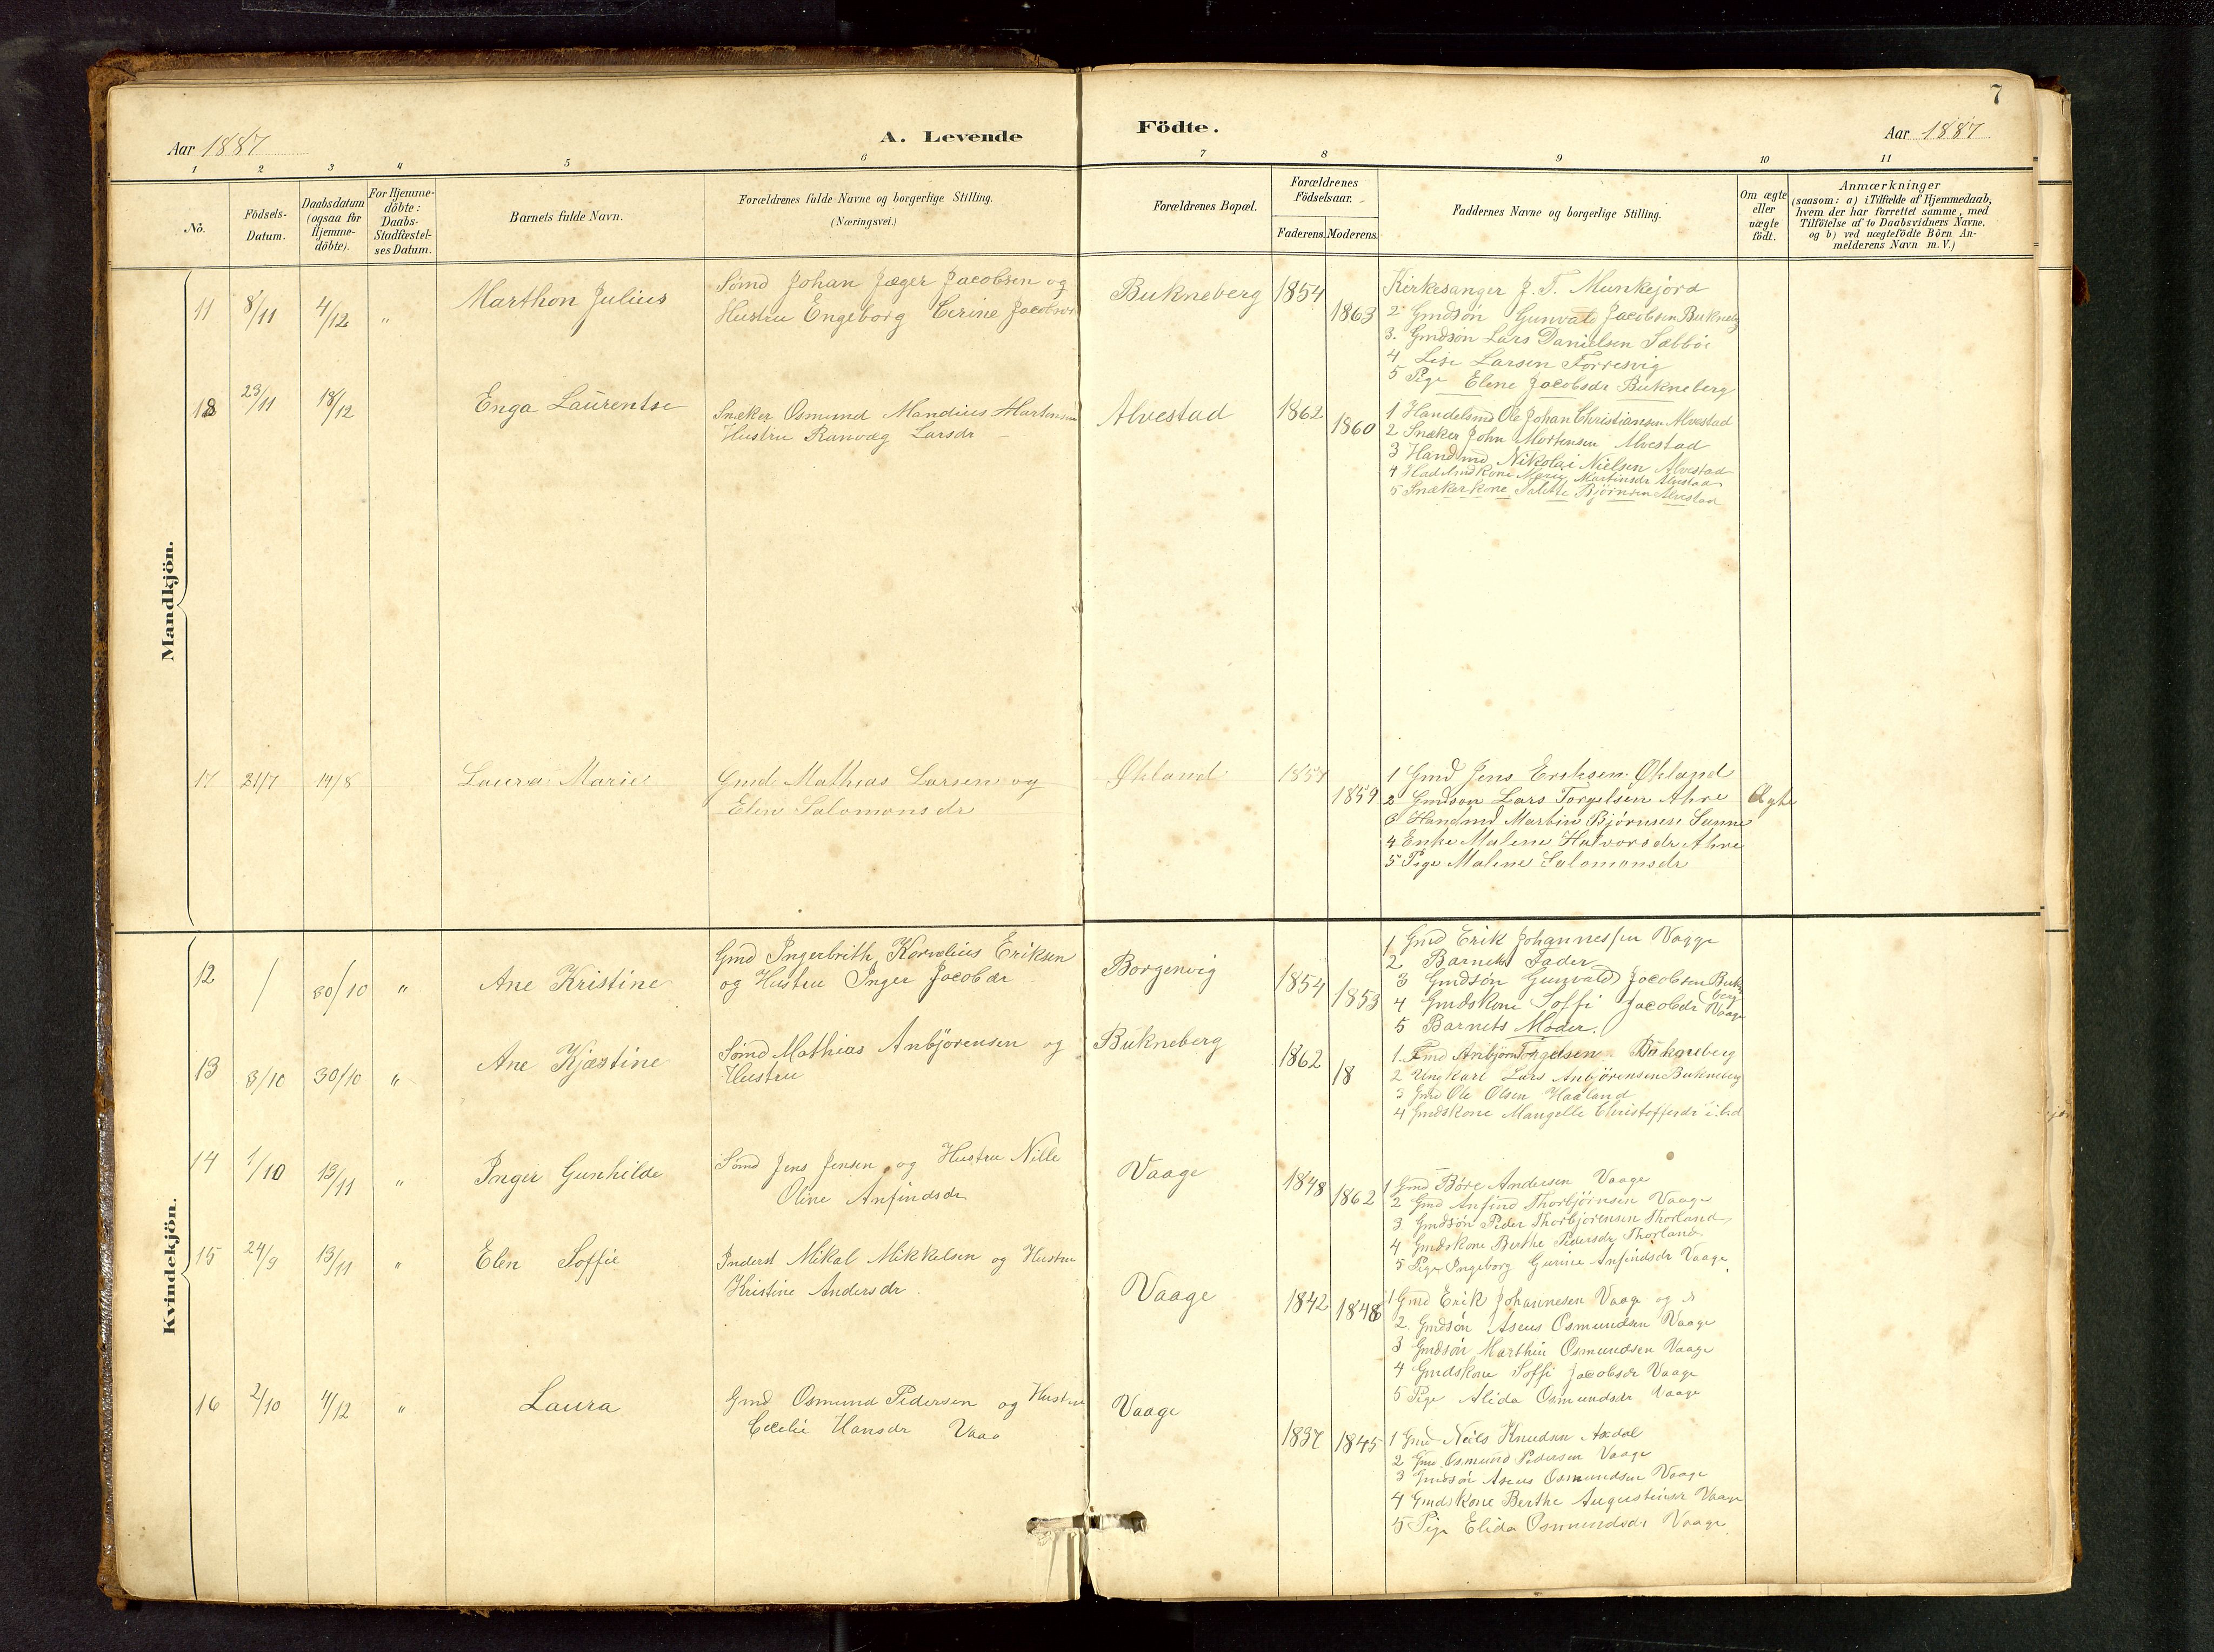 7
Aar 1887
A. Levende
Födte.
Aar 1887
1 2 3 4 5 6 7 8 9 10 11
Nö.
Födsels-
Datum.
Daabsdatum
(ogsaa for
Hjemme-
döbte).
For Hjemme-
döbte:
Daabs-
Stadfæstel-
ses Datum.
Barnets fulde Navn.
Forældrenes fulde Navne og borgerlige Stilling.
(Næringsvei.)
Forældrenes Bopæl.
Forældrenes
Födselsaar.
Faderens. Moderens.
Faddernes Navne og borgerlige Stilling.
Om ægte
eller
uægte
födt.
Anmærkninger
(saasom: a) i Tilfælde af Hjemmedaab,
hvem der har forrettet samme, med
Tilföielse af to Daabsvidners Navne,
og b) ved uægtefödte Börn An-
melderens Navn m. V.)
Mandkjön.
11 8/11 4/12 " Marthon Julius
Sømd Johan Jæger Jacobsen og
Hustru Engeborg Cerine Jacobsdr
Bukneberg 1854 1863
Kirkesanger J. T. Munkejord
2 Gmdsøn Gunvald Jacobsen Bukneberg
3. Gmdsøn Lars Danielsen Sæbbøe
4 Lise Larsen Førresvig
5 Pige Elene Jacobsdr Bukneberg
18 23/11 18/12 Enga Laurentse
Snæker Osmund Mandius Martensen
Hustru Ranvæg Larsdr
Alvestad 1862 1860
1 Handelsmd Ole Johan Christiansen Alvestad
2 Snæker John Mortensen Alvestad
3 Handmd Nikolai Nielsen Alvestad
4 Hadelmdkone Marie Martinsdr Alvestad
5 Snækerkone Salette Bjørnsen Alvestad
17 21/7 14/8 Laura Marie
Gmd Mathias Larsen og
Elen Salomonsdr
Økland 1857 1859
1 Gmd Jens Eriksen Økland
2 Gmdsøn Lars Torgelsen Ahre
3 Handmd Martin Bjørnsen Sunne
4 Enke Malene Halvorsdr Ahre
5 Pige Malene Salomonsdr
Ægte
Kvindekjön.
12 / 30/10 " Ane Kristine
Gmd Ingerbrith Kornelius Eriksen
og Hustru Inger Jacobdr
Borgenvig 1854 1853
1 Gmd Erik Johannessen Vaage
2 Barnets Fader
3 Gmdsøn Gunvald Jacobsen Bukneberg
4 Gmdskone Soffi Jacobdr Vaage
5 Barnets Moder.
13 3/10 30/10 " Ane Kjæstine
Sømd Mathias Anbjørensen og
Hustru
Bukneberg 1862 18
1. Fmd Anbjørn Torgelsen Bukneberg
2 Ungkarl Lars Anbjørensen Bukneberg
3 Gmd Ole Olsen Haaland
4 Gmdskone Mangelle Christoffersdr ibd
14 1/10 13/11 " Inger Gunhilde
Sømd Jens Jensen og Hustru Nille
Oline Anfindsdr
Vaage 1848 1862
1 Gmd Børe Andersen Vaage
2 Gmd Anfind Thorbjørnsen Vaage
3 Gmdsøn Peder Thorbjørensen Thorland
4 Gmdskone Berthe Pedersdr Thorland
5 Pige Ingeborg Gurine Anfindsdr Vaage
15 24/9 13/11 " Elen Soffie
Inderst Mikal Mikkelsen og Hustru
Kristine Andersdr.
Vaage 1842 1848
1 Gmd Erik Johannesen Vaage og
2. Gmdsøn Aseus Osmundsen Vaage
3 Gmdsøn Marthin Osmundsen Vaage
4 Gmdskone Soffi Jacobsdr Vaage
5 Pige Alida Osmundsdr Vaage
16 2/10 4/12 " Laura
Gmd Osmund Pedersen og Hustru
Cecelie Hansdr Vaag
Vaage 1837 1845
1 Gmd Neils Knudsen Axdal
2 Gmd Osmund Pedersen Vaage
3 Gmdsøn Aseus Osmundsen Vaage
4 Gmdskone Berthe Augustinusdr Vaage
5 Pige Elida Osmundsdr Vaage